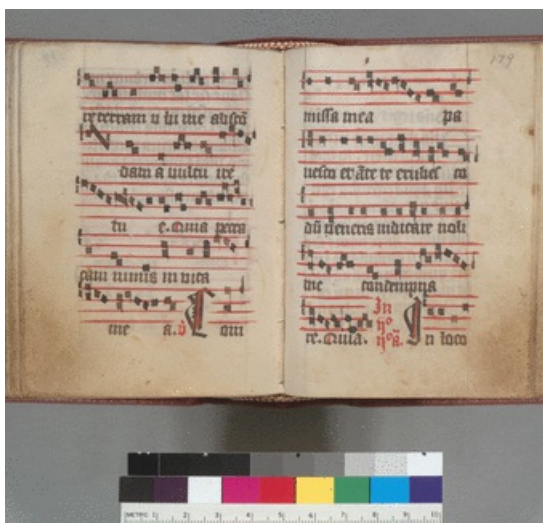 re terram u bi me abscō
dam a vultu ire
tu e. Quia pecca
cam nimis in vita
me a. v̄ Com
179
missa mea pa
uesco et āte te erubes co
dū veneris iudicare noli
me condempna
re. Quia. In ijº In loco
METRIC 1 2 3 4 5 6 7 8 9 10